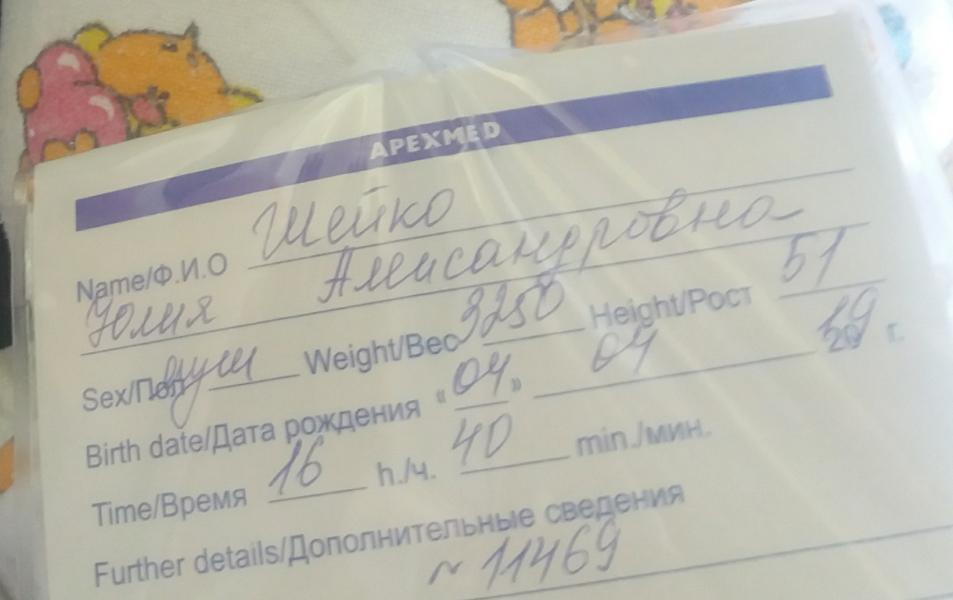 APEXMED
Name/Ф.И.О Шейко
Юлия Александровна
Sex/Пол Weight/Вес 3250 Height/Рост 51
Birth date/Дата рождения «04» 04 2019 г.
Time/Время 16 h./ч. 40 min./мин.
Further details/Дополнительные сведения
~ 11469